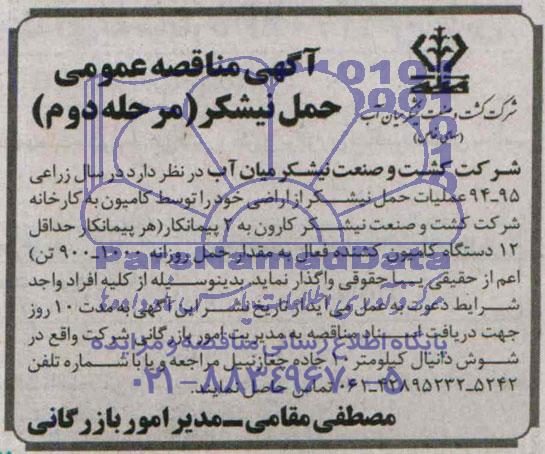 آگهی مناقصه عمومی
حمل نیشکر (مرحله دوم)
شرکت کشت و صنعت نیشکر میان آب
(سهامی خاص)
شرکت کشت و صنعت نیشکر میان آب در نظر دارد در سال زراعی
۹۵-۹۴ عملیات حمل نیشکر از اراضی خود را توسط کامیون به کارخانه
شرکت کشت و صنعت نیشکر کارون به ۲ پیمانکار (هر پیمانکار حداقل
۱۲ دستگاه کامیون کشنده فعال به مقدار حمل روزانه ۱۰۰۰-۹۰۰ تن)
اعم از حقیقی یا حقوقی واگذار نماید. بدینوسیله از کلیه افراد واجد
شرایط دعوت به عمل می آید از تاریخ نشر این آگهی به مدت ۱۰ روز
جهت دریافت اسناد مناقصه به مدیریت امور بازرگانی شرکت واقع در
شوش دانیال کیلومتر ۲۰ جاده جفازنبیل مراجعه و یا با شماره تلفن
۵۲۴۲-۴۲۸۹۵۲۳۲-۰۶۱ تماس حاصل نمایند.
مصطفی مقامی - مدیر امور بازرگانی
ParsNamadData
پایگاه اطلاع رسانی مناقصه و مزایده
۰۲۱-۸۸۳۴۹۶۷۰-۵